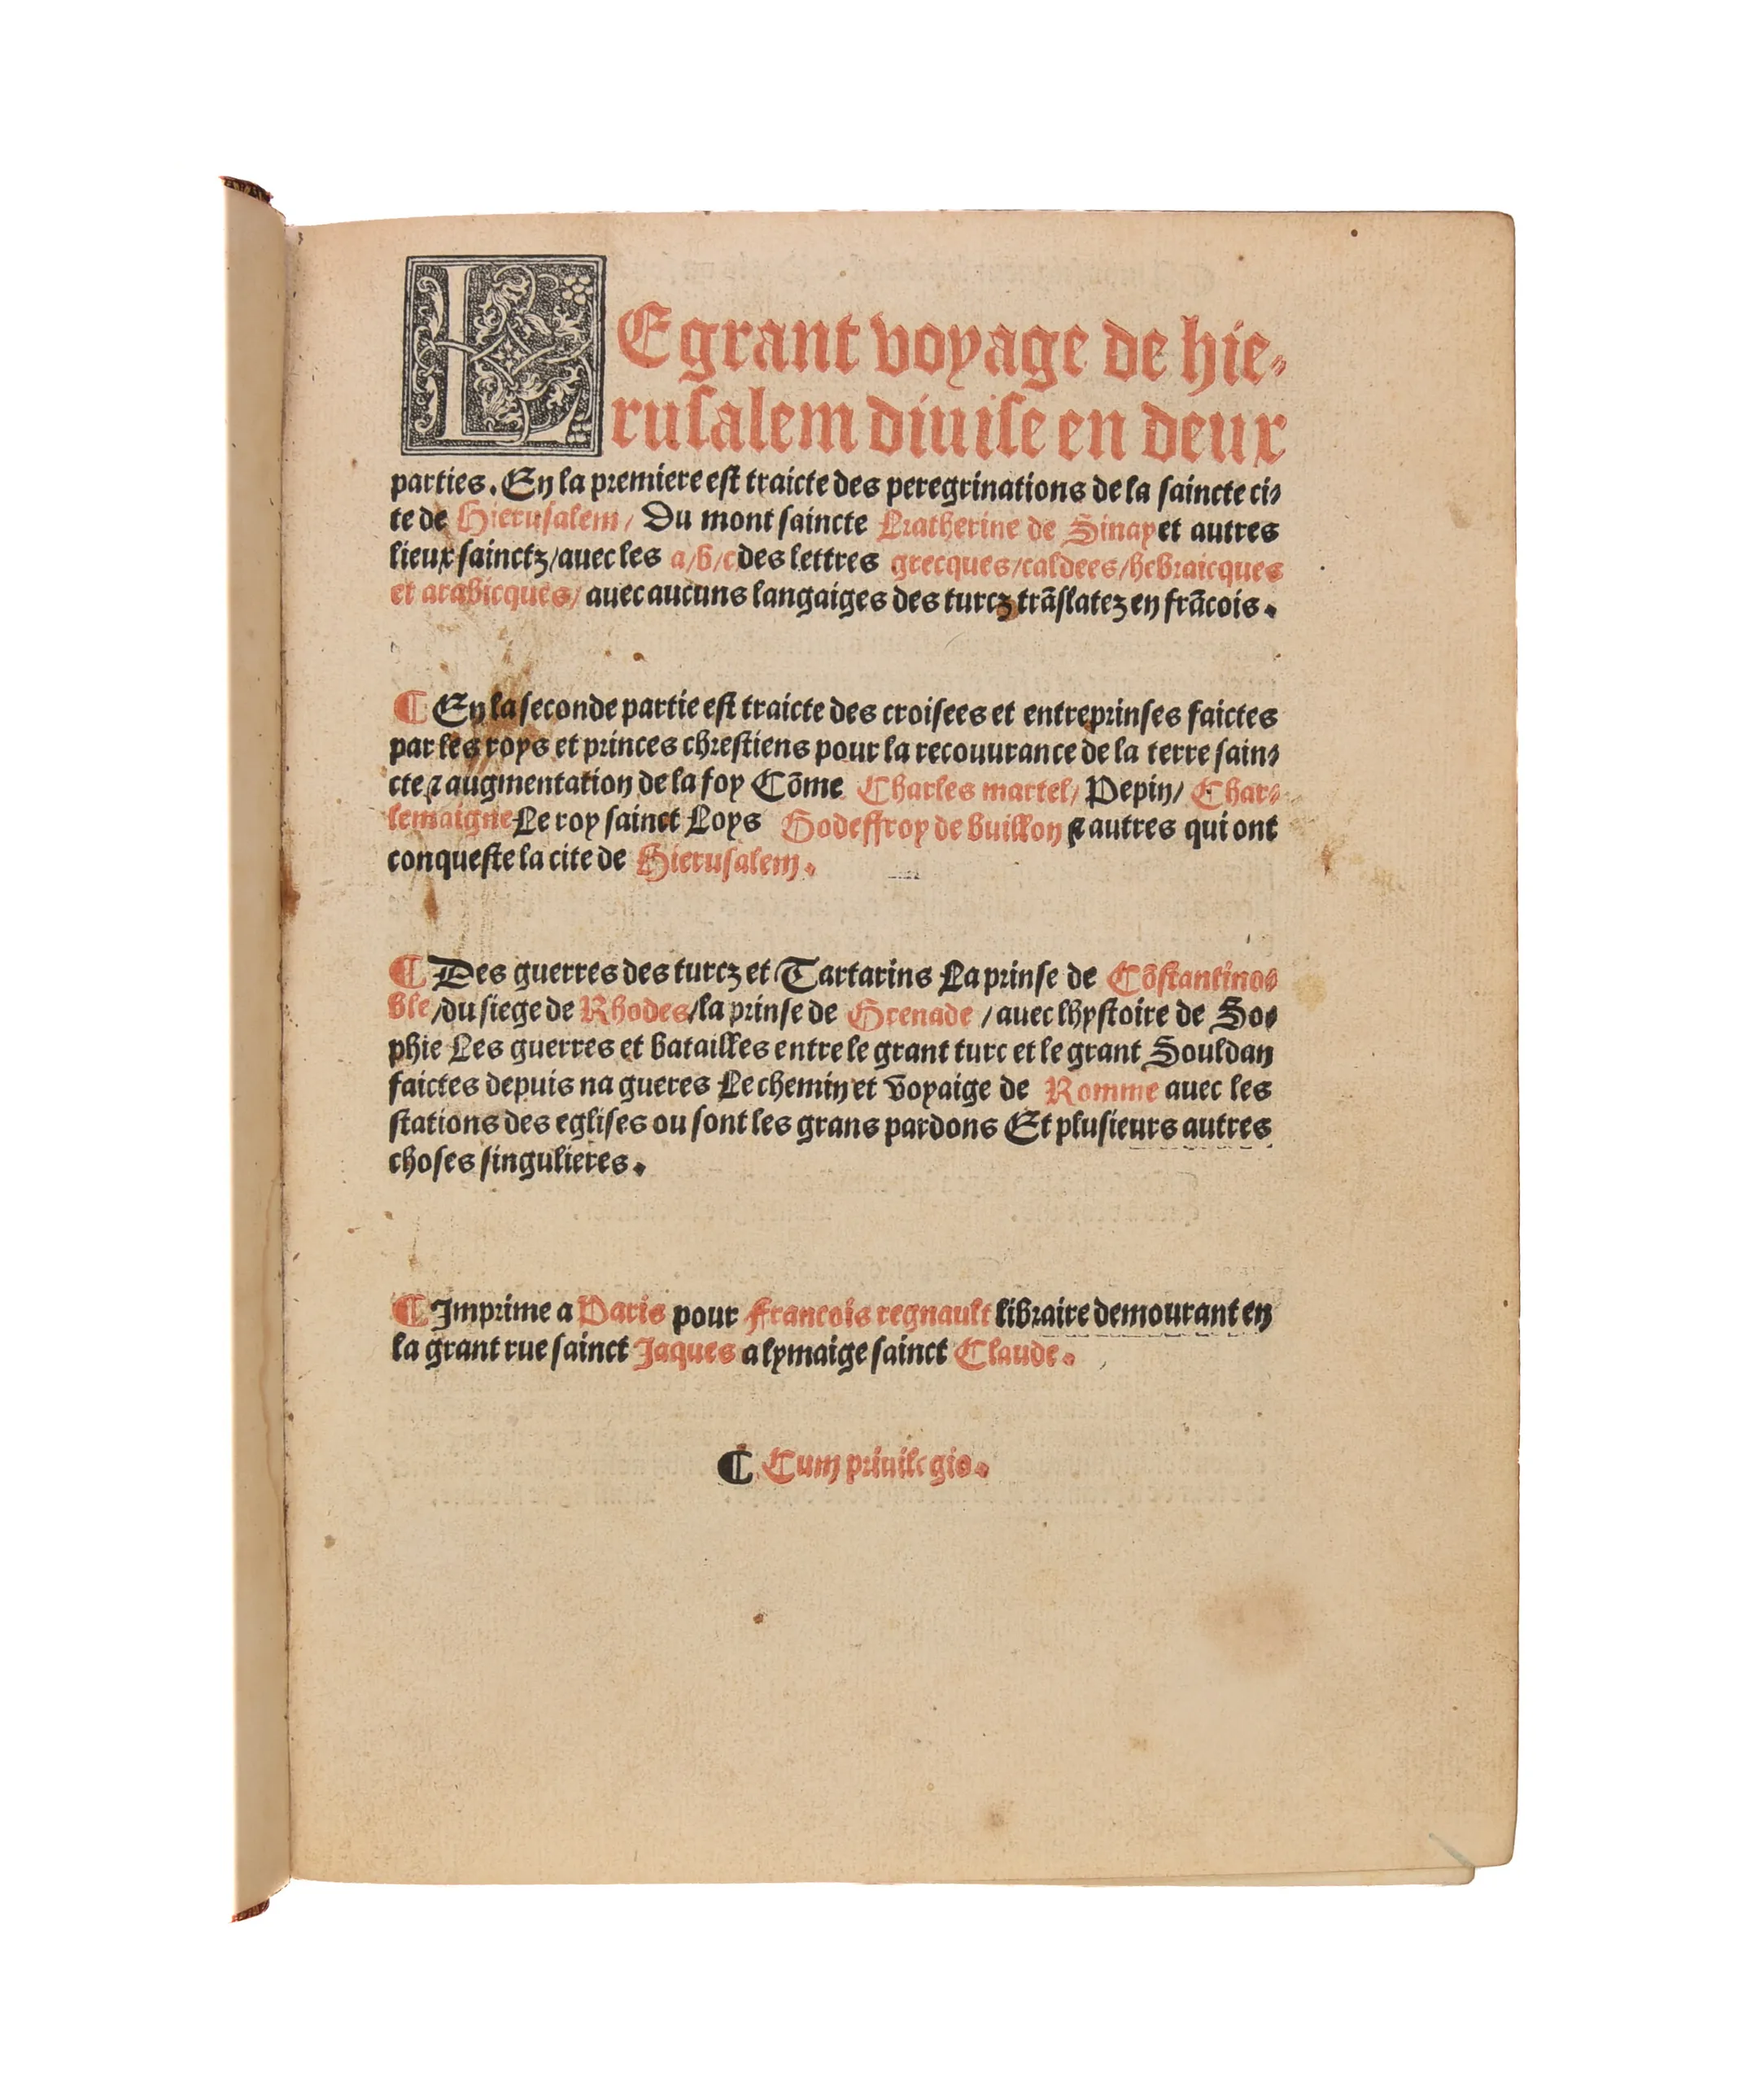 LE grant voyage de hie⸗
rusalem diuise en deux
parties. En la premiere est traicte des peregrinations de la saincte ci⸗
te de Hierusalem/ Du mont saincte Katherine de Sinay et autres
lieux sainctz/auec les a/b/c des lettres grecques/caldees/hebraicques
et arabicques/ auec aucuns langaiges des turcz trãslatez en frãcois.
¶ En la seconde partie est traicte des croisees et entreprinses faictes
par les roys et princes chrestiens pour la recouurance de la terre sain⸗
cte ⁊ augmentation de la foy Cõme Charles martel/ Pepin/ Char⸗
lemaigne Le roy sainct Loys Godeffroy de buillon ⁊ autres qui ont
conqueste la cite de Hierusalem.
¶ Des guerres des turcz et Tartarins La prinse de Cõstantino⸗
ble/du siege de Rhodes/la prinse de Grenade /auec lhystoire de So⸗
phie Les guerres et batailles entre le grant turc et le grant Souldan
faictes depuis na gueres Le chemin et voyaige de Romme auec les
stations des eglises ou sont les grans pardons Et plusieurs autres
choses singulieres.
¶ Imprime a Paris pour francois regnault libraire demourant en
la grant rue sainct Jaques a lymaige sainct Claude.
¶ Cum priuilegio.